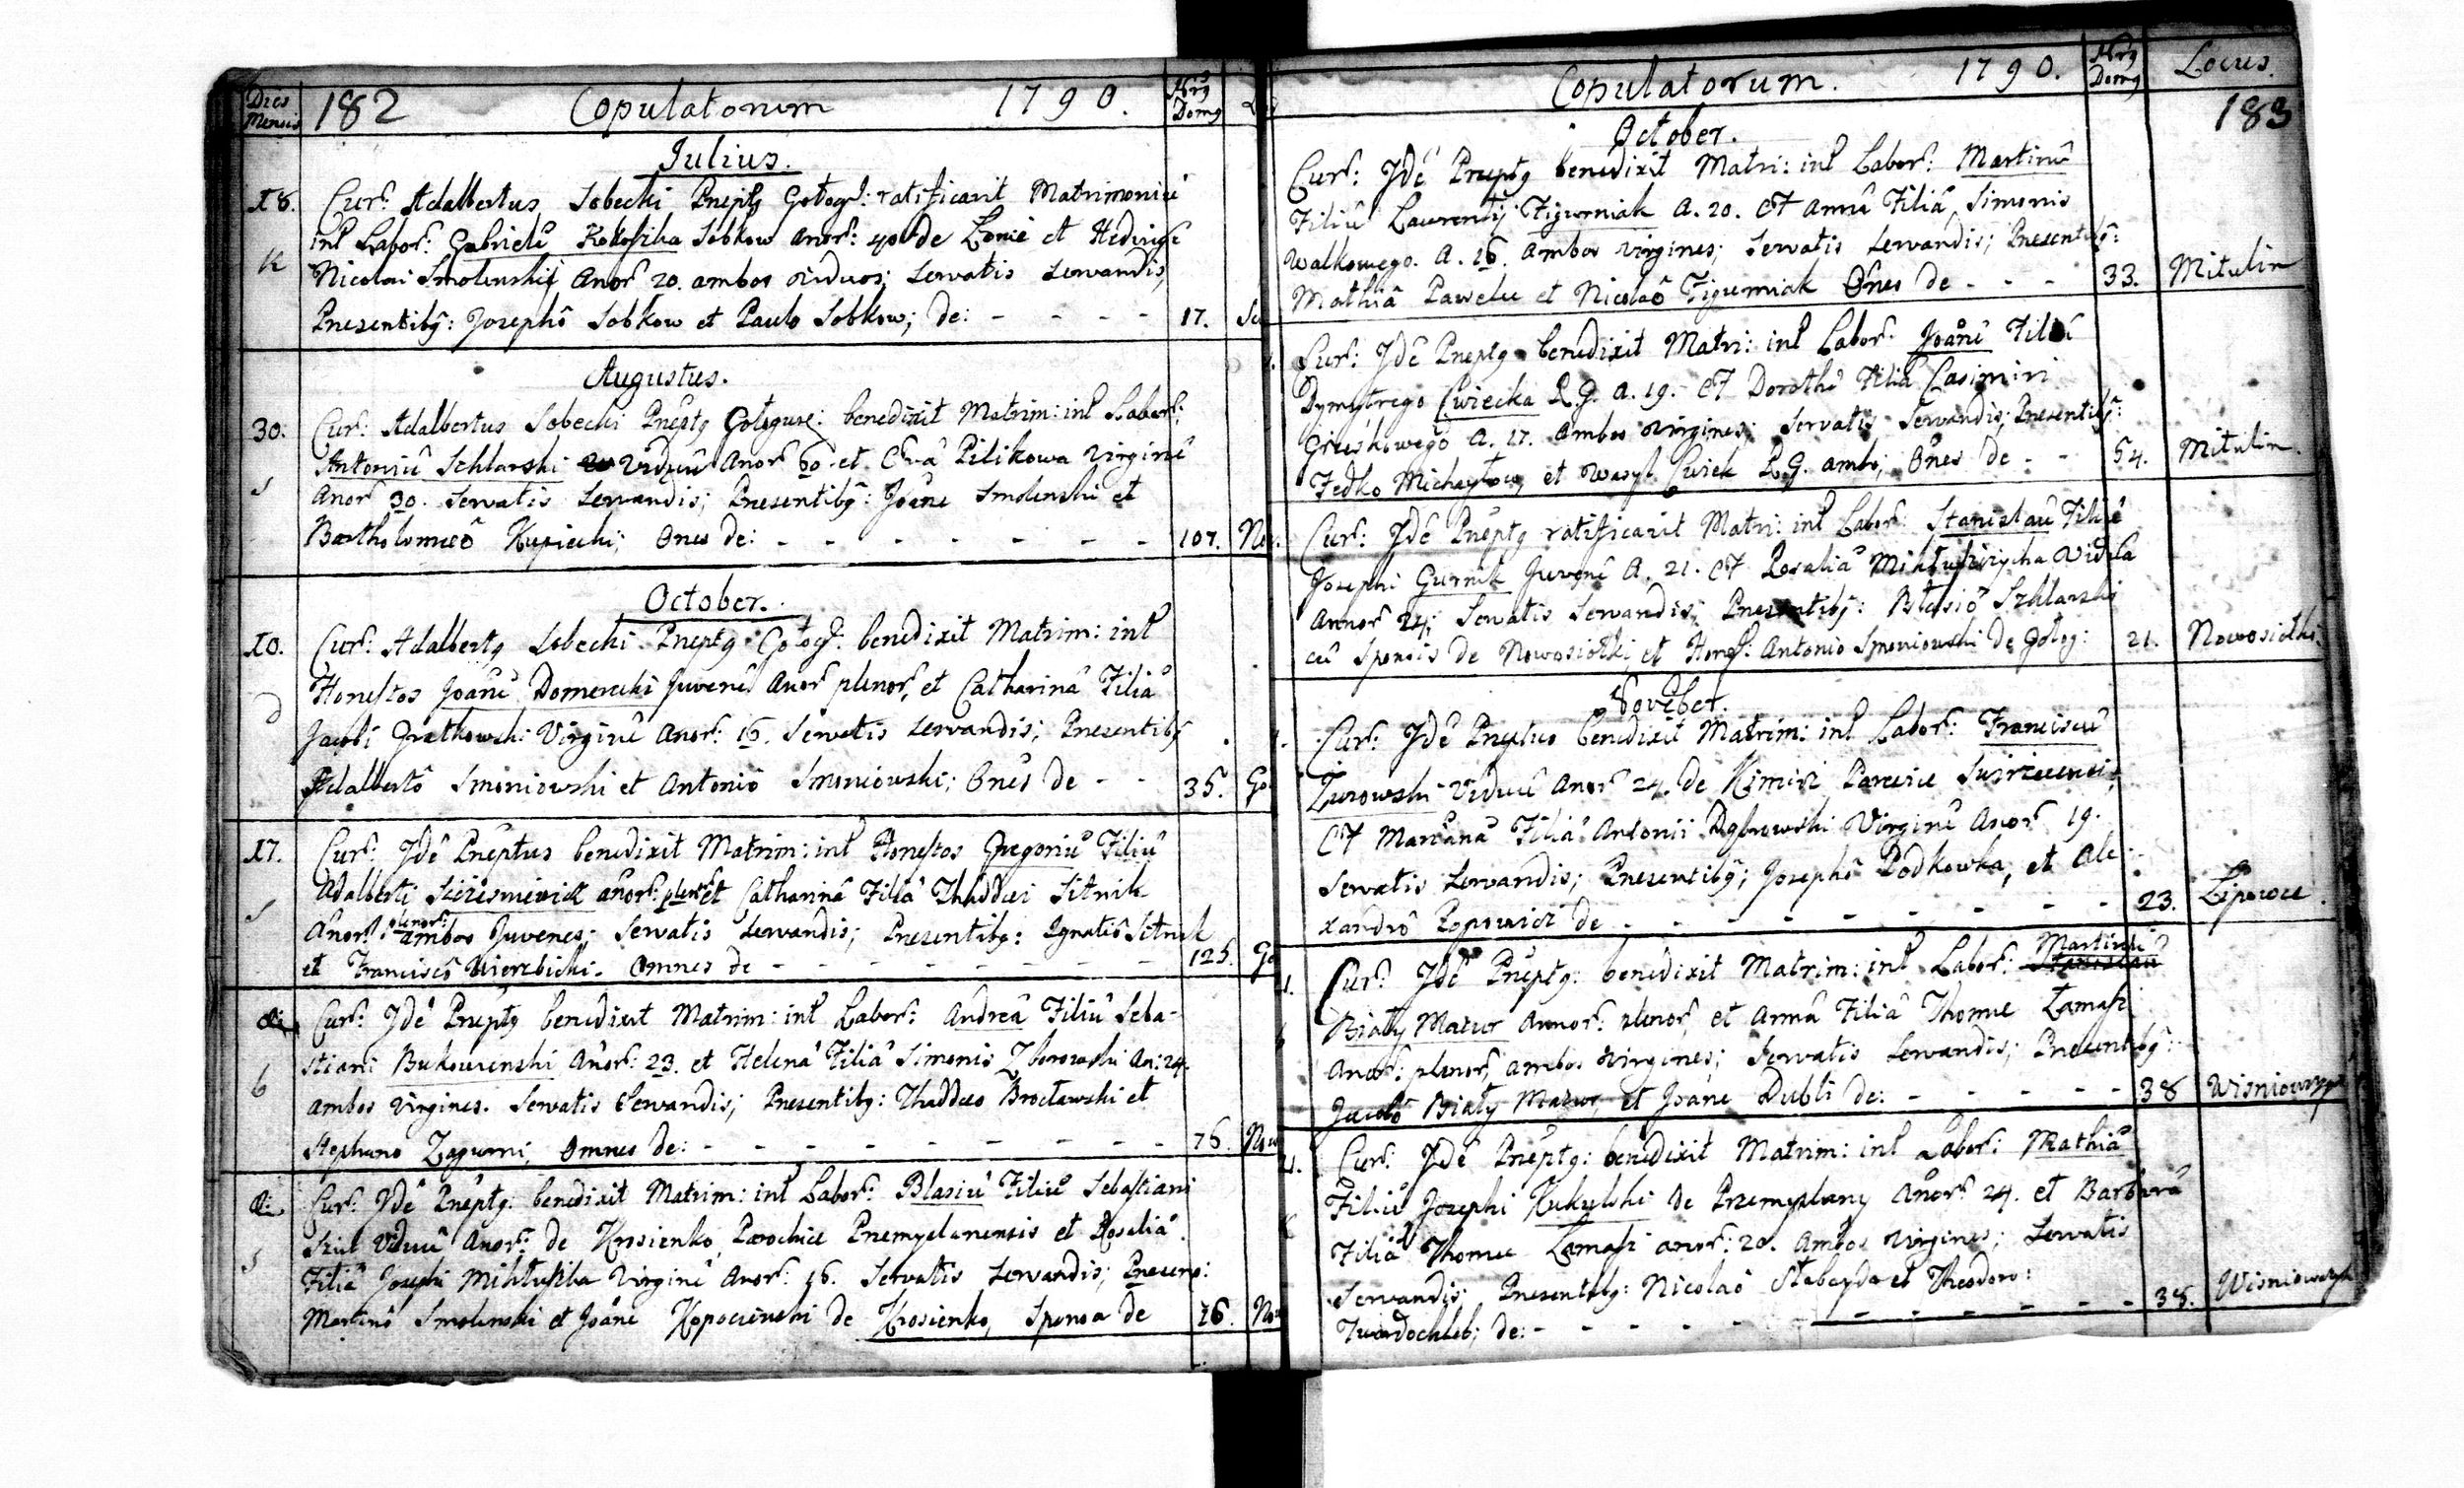 Dies Mensis 182 Copulatorum 1790. Nrg Domg
Julius.
18. Cur: Adalbertus Sobecki Prepts Gologr: ratificavit Matrimoniu
int Labor: Gabrielu Kokoszka Sobkow Anor: 40 de Lonie et Hedvige
K Nicolai Smolenskij Anor 20. ambos viduos; Servatis Servandis,
Presentibg: Josephô Sobkow et Paulo Sobkow; de: - - - - 17.
Augustus.
30. Cur: Adalbertus Sobecki Preptg Gologurz: benedixit Matrim: int Labor:
Antoniû Schlarski Viduû Anor 60. et Evâ Pilikowa Virginê
S Anor 30. Servatis Servandis; Presentibg: Joâne Smolenski et
Bartholomeô Kupiecki; Ones de: - - - - - - - 107.
October.
10. Cur: Adalbertg Sobecki Preptg Golog: benedixit Matrim: int
Honestos Joânê Domerecki Juvenê Anor plenor, et Catharinâ Filiâ
Jacobi Gratkowski Virginê Anor: 16. Servatis Servandis; Presentibg
Adalbertô Smoniowski et Antoniô Smoniowski; Ones de - - 35. Go
17. Cur: Jdê Preptus benedixit Matrim: int Honestos Gregoriû Filiû
Adalberti anor: plenor et Catharinâ Filiâ Thaddei Sitnik
S Anor: plenor: ambos Juvenes; Servatis Servandis; Presentibg: Ignatiô Sitnik
et Franciscô Wierzbicki. Omnes de - - - - - - - 125. Go
Cur: Jdê Preptg benedixit Matrim: int Labor: Andreâ Filiû Seba-
stiani Bukowenski Anor: 23. et Helenâ Filiâ Simonis Zborowski An: 24.
b ambos Virgines. Servatis Servandis; Presentibg: Thaddeo Broclawski et
Stephano Zagurni, Omnes de: - - - - - - - - - 76. Now
Cur: Jdê Preptg. benedixit Matrim: int Labor: Blasiû Filiû Sebastiani
Viduû Anor: de Krosienko, Parochiæ Premyslanensis et Rosaliâ
S Filiâ Josephi Mikluszka Virginê Anor: 16. Servatis Servandis; Presenti:
Martinô Smolenski et Joâne Kopocienski de Krosienko, Sponsa de 76. No
Copulatorum. 1790. Nrg Domg Locus.
183
October.
Cur: Jdê Preptg benedixit Matri: int Labor: Martinû
Filiû Laurentij Figurniak A. 20. et Annâ Filiâ Simonis
Walkowego. A. 16. Ambos Virgines; Servatis Servandis; Presentibg:
Mathiâ Pawelu et Nicolaô Figurniak Ônes de - - - 33. Mitulin
Cur: Jdê Preptg benedixit Matri: int Labor: Joânê Filiû
Dymytrego Cwiecka R.G. A. 19. et Dorothê Filiâ Casimiri
Grieskowego A. 17. Ambos Virgines; Servatis Servandis; Presentibg:
Fedko Michaylow, et Wasyl Cwiek R.G. ambo; Ônes de - - 54. Mitulin.
Cur: Jdê Preptg ratificavit Matri: int Labor: Stanislaû Filiû
Josephi Gurnik Juvenê A. 21. et Rosaliâ Viduâ
Annor 24; Servatis Servandis; Presentibg: Blasiô Szklarski
cû Sponsis de Nowosiolki et Hong: Antonio Smoniowski de Golog: 21. Nowosiolki
Novêber.
Cur: Jdê Preptus benedixit Matrim: int Labor: Franciscû
Zurowski Viduû Anor 24. de Kimirz Parociæ
et Mariânâ Filiâ Antonii Dąbrowski Virginê Anor 19.
Servatis Servandis; Presentibg; Josephô Podkowka, et Ale-
xandrô Popowicz de - - - - - - - - 23. Lipowce.
Martinû
Cur: Jdê Preptg: benedixit Matrim: int Labor: Stanislaû
Bialy Mazur Annor: plenor, et Annâ Filiâ Thomæ Lamasz
Anor: plenor, ambos Virgines; Servatis Servandis; Presentibg:
Jacobô Bialy Mazur, et Joâne Dubli de: - - - - - 38 Wisniowczyk
Cur: Jdê Preptg: benedixit Matrim: int Labor: Mathiâ
Filiû Josephi Kukulski de Przemyslany Anor: 24. et Barbarâ
Filiâ Thomæ Lamasz anor: 20. Ambos Virgines; Servatis
Servandis; Presentibg: Nicolaô Slobayda et Theodoro:
Twardochleb; de: - - - - - - - - 38. Wisniowczyk